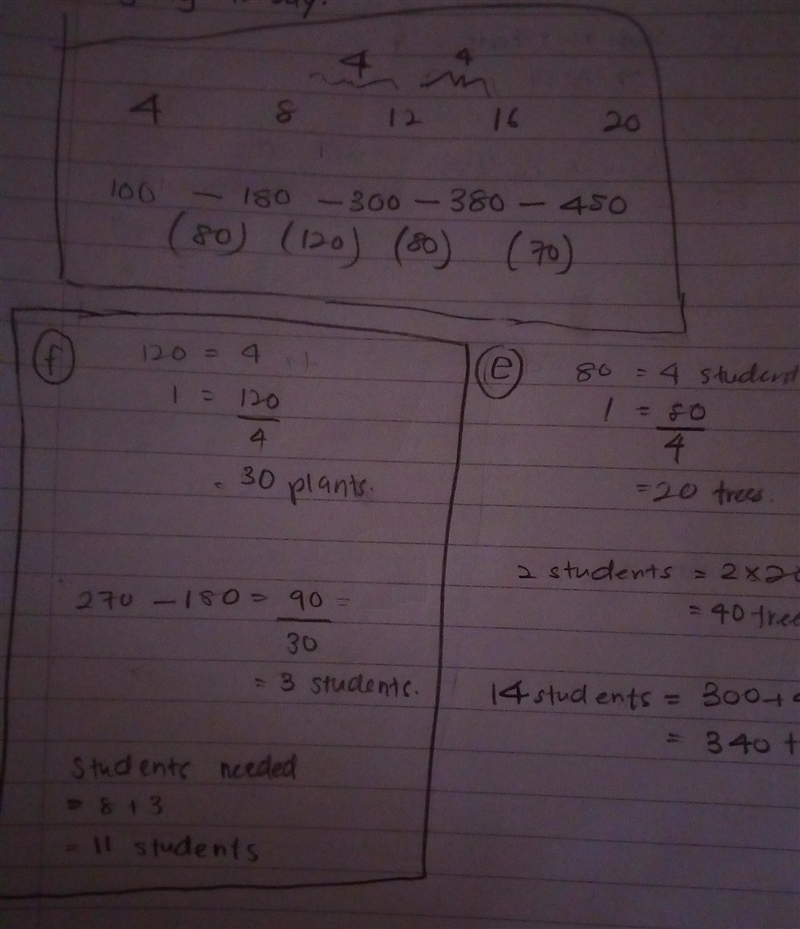 say.
4 4
4 8 12 16 20
100 - 180 - 300 - 380 - 450
(80) (120) (80) (70)
f
120 = 4
1 = 120
4
= 30 plants.
270 - 180 = 90 =
30
= 3 students.
Students needed
= 8 + 3
= 11 students
e
80 = 4 student
1 = 80
4
= 20 trees.
2 students = 2 × 20
= 40 tree
14 students = 300 + 4
= 340 t